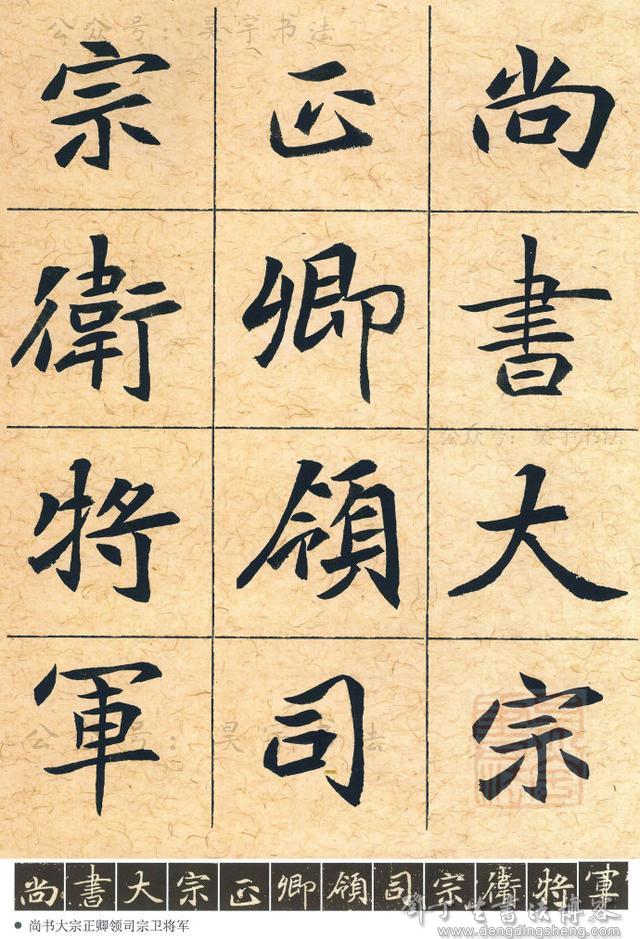 尚書大宗
正卿領司
宗衛將軍
公众号：昊宇书法
公众号：昊宇书法
公众号：昊宇书法
尚書大宗正卿領司宗衛將軍
尚书大宗正卿领司宗卫将军
邓丁生书法博客
www.dengdingsheng.com